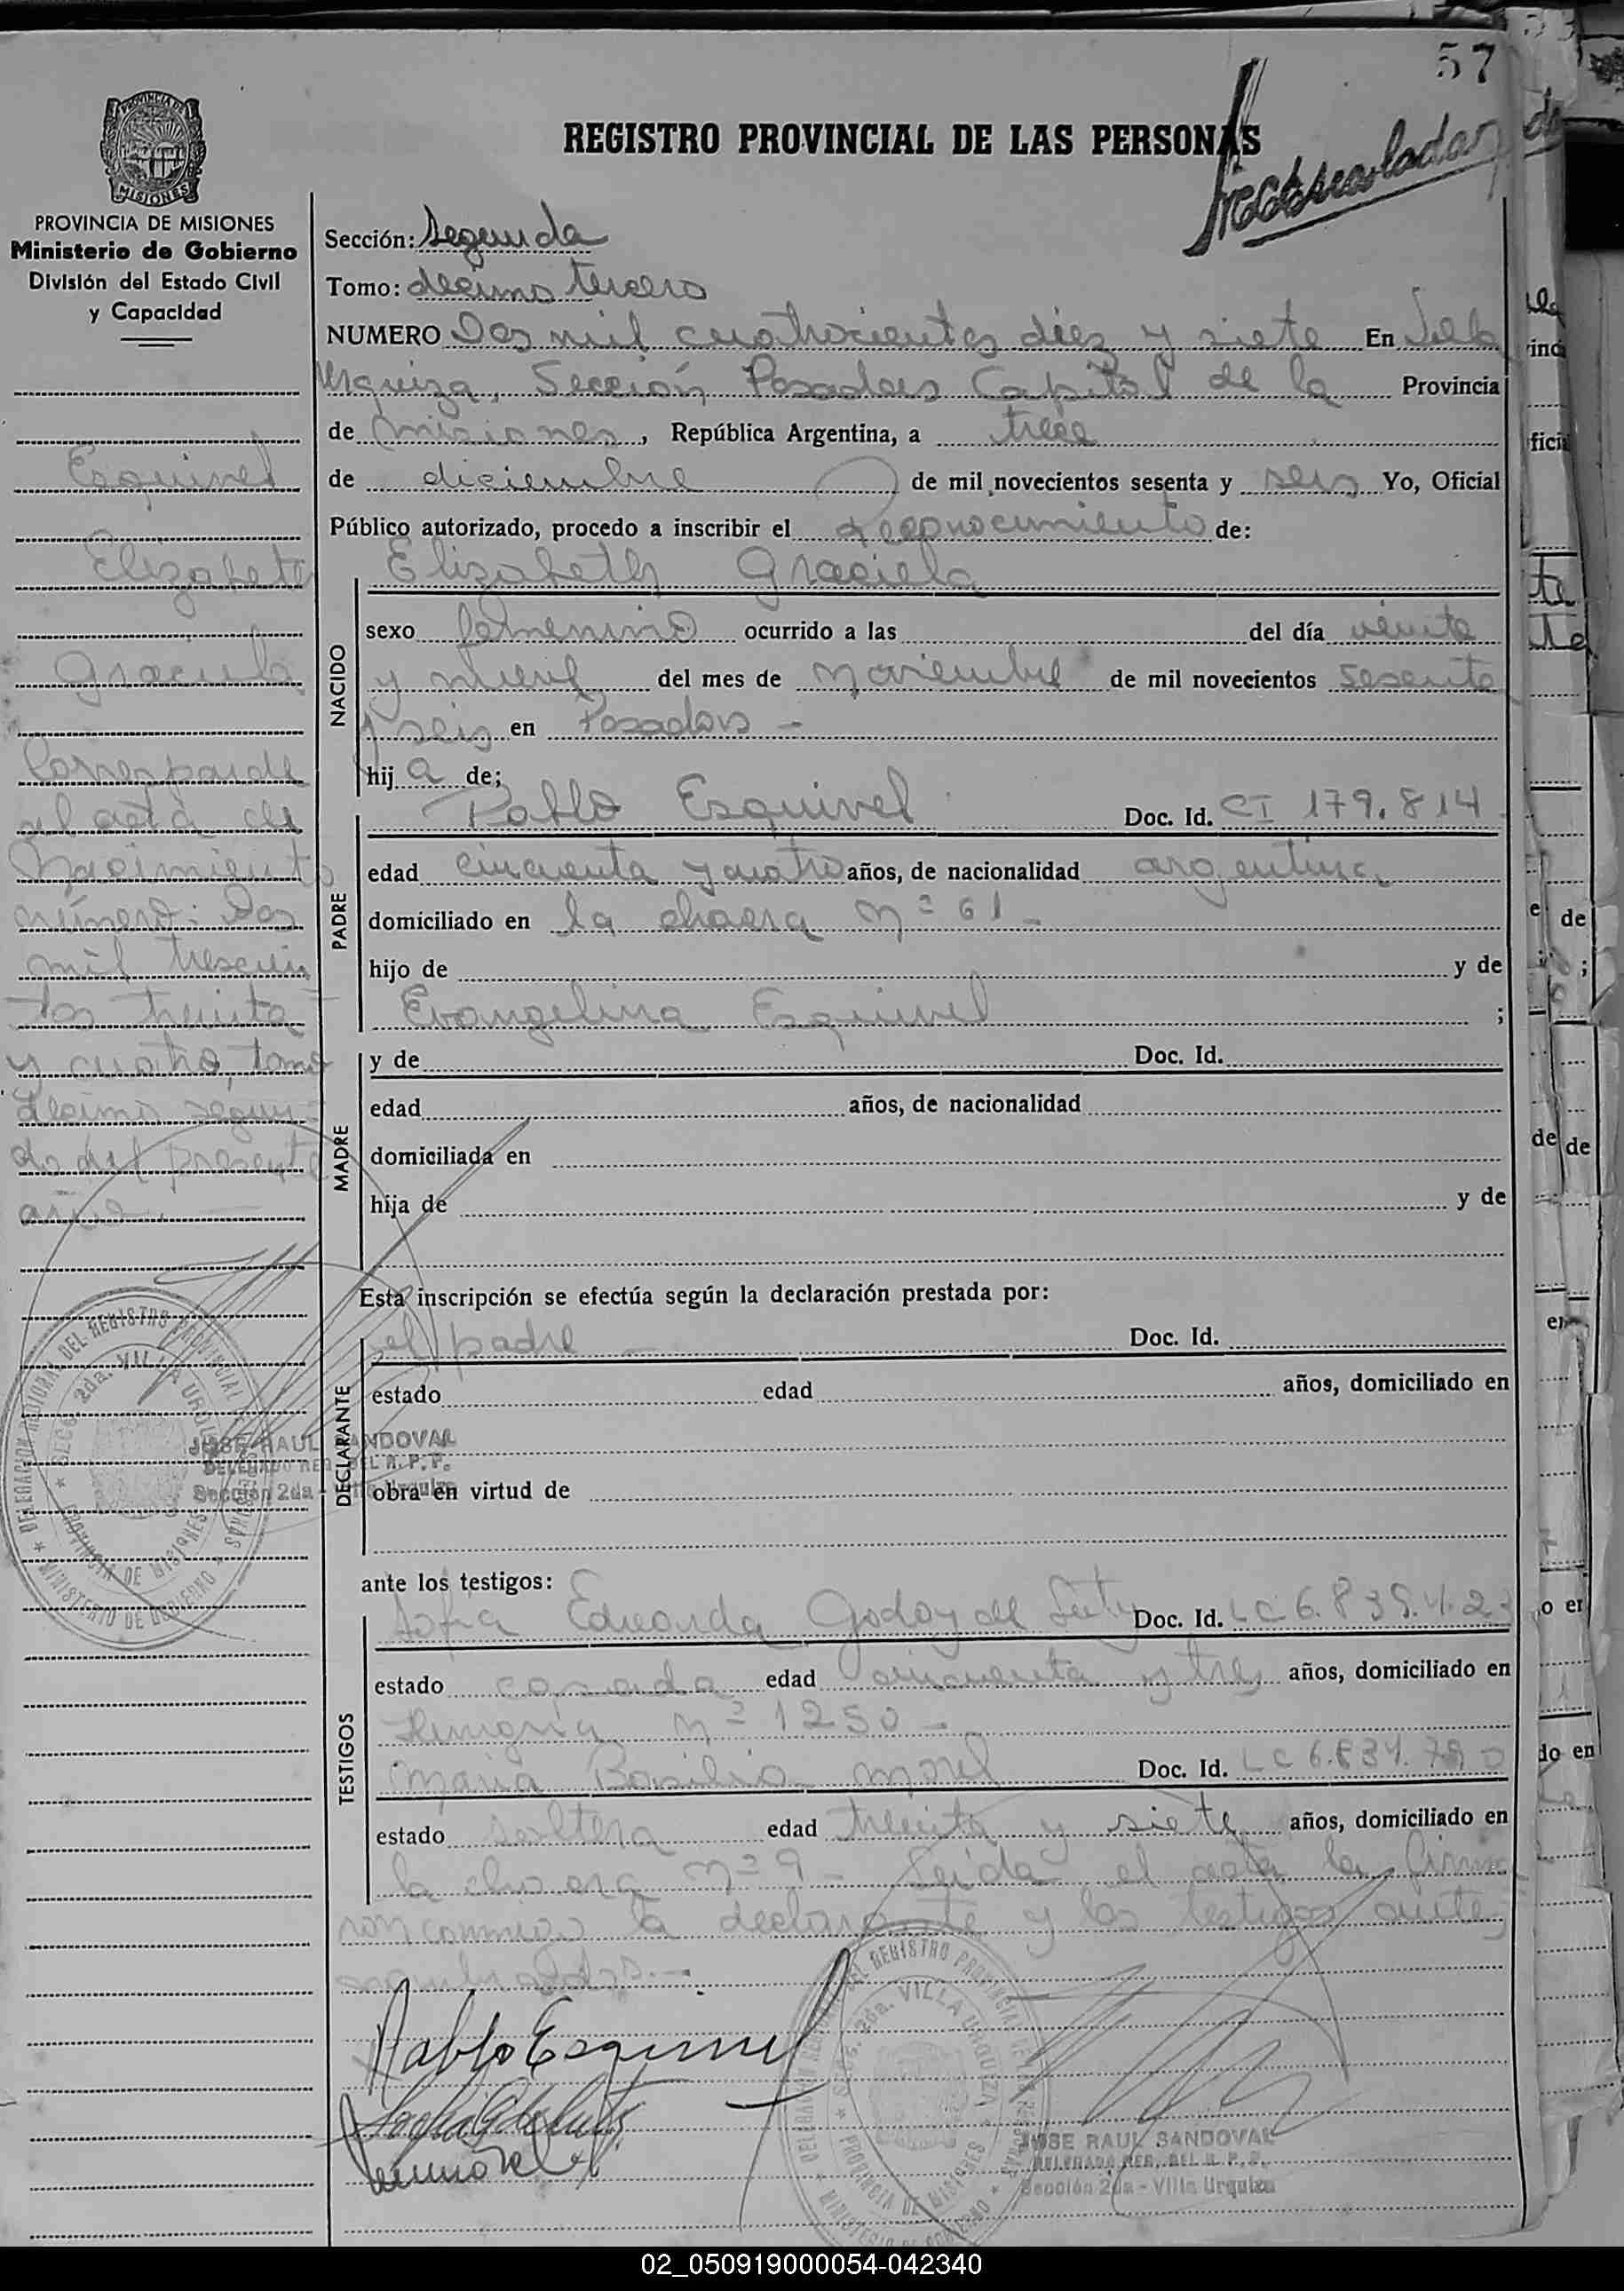 57
REGISTRO PROVINCIAL DE LAS PERSONAS
PROVINCIA DE MISIONES
MISIONES
PROVINCIA DE MISIONES
Ministerio de Gobierno
División del Estado Civil
y Capacidad
Esquivel
Elizabeth
Graciela
Corresponde
el acta de
Nacimiento
número: Dos
mil trescien
tos treinta
y cuatro, tomo
décimo segun
do del presente
año. —
Sección: Segunda
Tomo: décimo tercero
NUMERO Dos mil cuatrocientos diez y siete En Villa
Urquiza, Sección Posadas Capital de la Provincia
de Misiones, República Argentina, a trece
de diciembre de mil novecientos sesenta y seis Yo, Oficial
Público autorizado, procedo a inscribir el reconocimiento de:
Elizabeth Graciela
NACIDO
sexo femenino ocurrido a las del día veinte
y nueve del mes de noviembre de mil novecientos sesenta
y seis en Posadas —
hij a de;
PADRE
Pablo Esquivel Doc. Id. CI 179.814
edad cincuenta y cuatro años, de nacionalidad argentina
domiciliado en la chacra Nº 61 —
hijo de y de
Evangelina Esquivel ;
MADRE
y de Doc. Id.
edad años, de nacionalidad
domiciliada en
hija de y de
Esta inscripción se efectúa según la declaración prestada por:
DECLARANTE
el padre — Doc. Id.
estado edad años, domiciliado en
obra en virtud de
ante los testigos:
TESTIGOS
Sofia Eduarda Godoy de Doc. Id. LC 6.839.423
estado casada edad cincuenta y tres años, domiciliado en
Hungría Nº 1250 —
Maria Basilia Morel Doc. Id. LC 6.834.790
estado soltera edad treinta y siete años, domiciliado en
la chacra Nº 9 — Leida el acta la firma
ron conmigo la declarante y los testigos ante
Pablo Esquivel
DELEGACION REGIONAL DEL REGISTRO PROVINCIAL DE LAS PERSONAS
SECC. 2da. VILLA URQUIZA
PROVINCIA DE MISIONES
MINISTERIO DE GOBIERNO
JOSE RAUL SANDOVAL
DELEGADO REG. DEL R. P. P.
Sección 2da - Villa Urquiza
DELEGACION REGIONAL DEL REGISTRO PROVINCIAL DE LAS PERSONAS
SECC. 2da. VILLA URQUIZA
PROVINCIA DE MISIONES
MINISTERIO DE GOBIERNO
JOSE RAUL SANDOVAL
DELEGADO REG. DEL R. P. P.
Sección 2da - Villa Urquiza
02_050919000054-042340